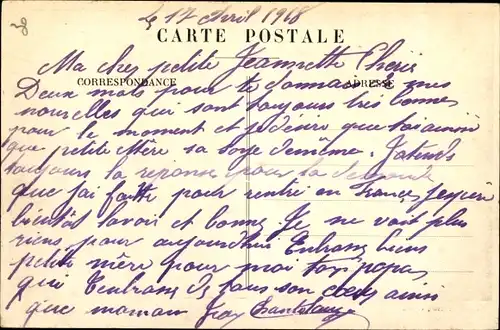 Le 17 Avril 1918
CARTE POSTALE
Ma cher petite Jeannette Cherie
CORRESPONDANCE
ADRESSE
Deux mots pour te donner mes
nouvelles qui sont toujours très bonnes
pour le moment et je désire que toi ainsi
que petite Mère sa soye de même. J'atends
toujours la reponse pour la demande
que j'ai faitte pour rentré en France, j'espère
bientôt lavoir et bonne. Je ne voit plus
riens pour aujourd'hui Enbrasse biens
petite mère pour moi ton papa
qui t'enbrasse de tous son cœur ainsi
que maman